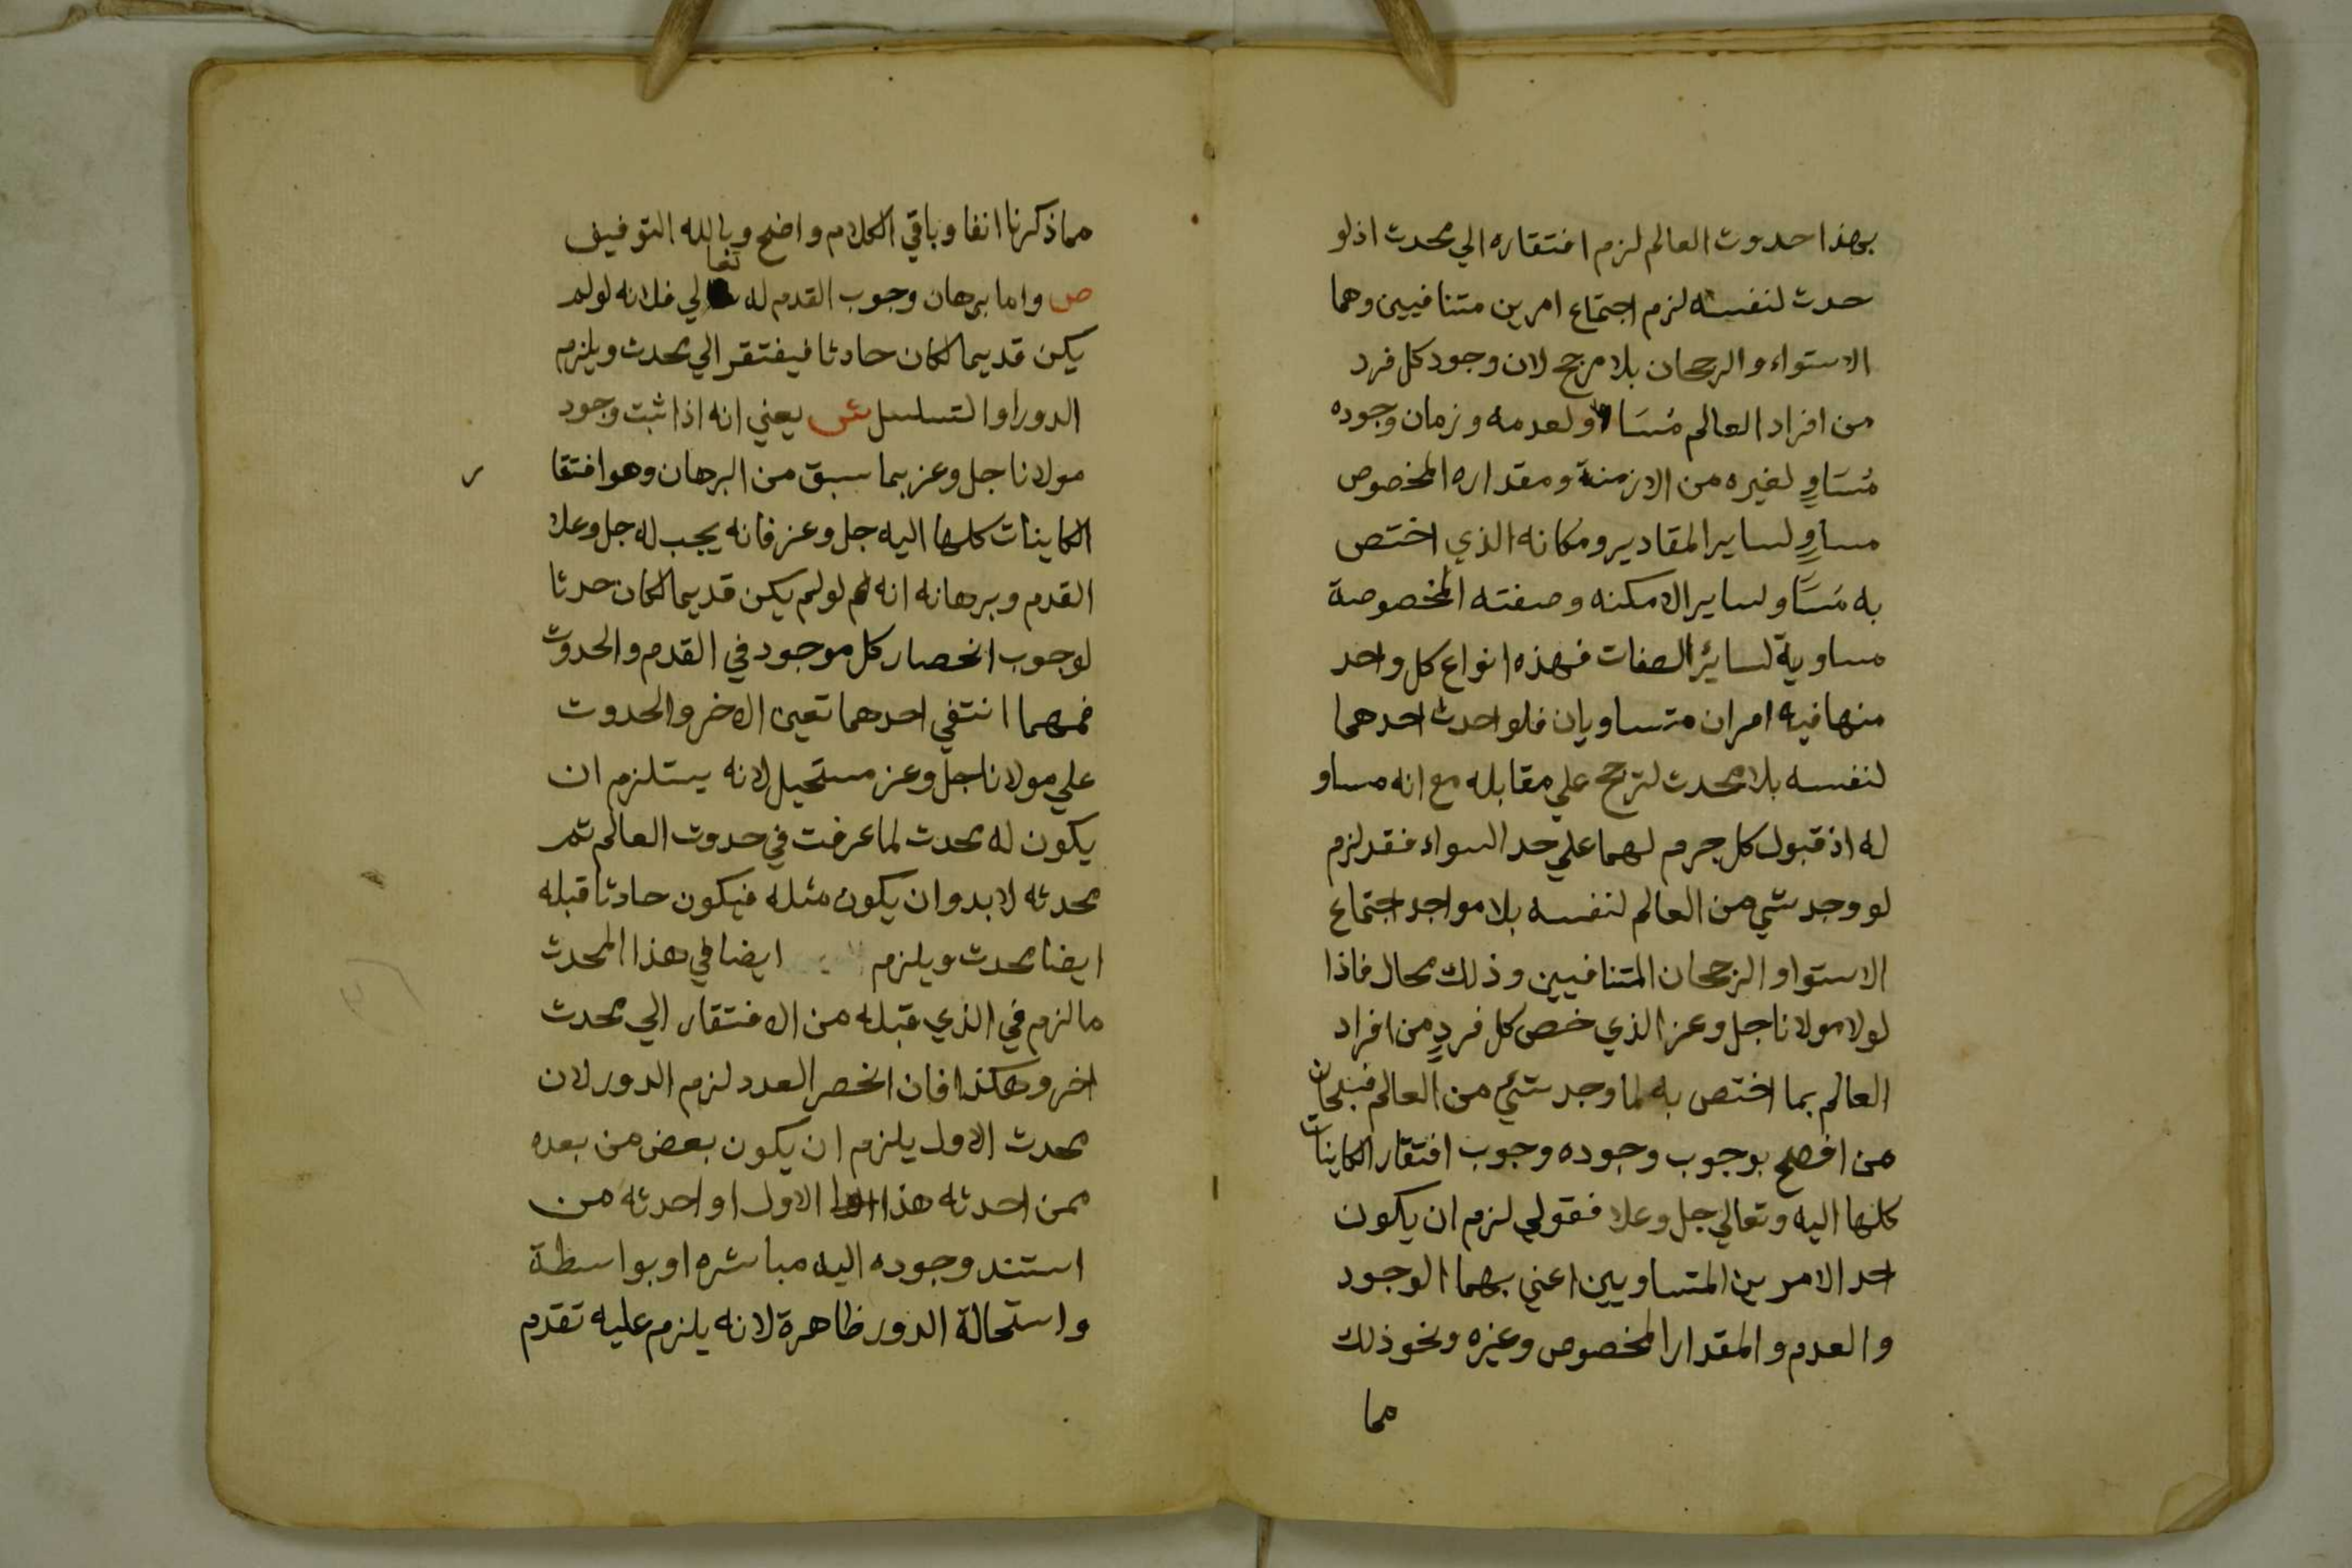 بهذا حدوث العالم لزم افتقاره الي محدث اذ لو
حدث لنفسه لزم اجتماع امرين متنافيين وهما
الاستواء والرجحان بلا مرجح لان وجود كل فرد
من افراد العالم مُسَاو لعدمه وزمان وجوده
مُسَاوٍ لغيره من الازمنة ومقداره المخصوص
مساوٍ لساير المقادير ومكانه الذي اختص
به مُسَاو لساير الامكنه وصفته المخصوصة
مساوية لسائر الصفات فهذه انواع كل واحد
منها فيه امران متساويان فلو احدث احدهما
لنفسه بلا محدث لترجح علي مقابله مع انه مساو
له اذ قبول كل جرم لهما علي حد السواء فقد لزم
لو وجد شي من العالم لنفسه بلا مواجد اجتماع
الاستوا والرجحان المتنافيين وذلك محال فاذا
لولا مولانا جل وعز الذي خص كل فردٍ من افراد
العالم بما اختص به لما وجد شئ من العالم فسبحان
من افصح بوجوب وجوده وجوب افتقار الكاينات
كلها اليه وتعالي جل وعلا فقولي لزم ان يكون
احد الامرين المتساويين اعني بهما الوجود
والعدم والمقدار المخصوص وغيره ونحو ذلك
مما
مما ذكرنا انفا وباقي الكلام واضح وبالله التوفيق
ص واما برهان وجوب القدم له تعالي فلانه لو لم
يكن قديما لكان حادثا فيفتقر الي محدث ويلزم
الدور او التسلسل ش يعني انه اذا ثبت وجود
مولانا جل وعز بما سبق من البرهان وهو افتقا ر
الكاينات كلها اليه جل وعز فانه يجب له جل وعلا
القدم وبرهانه انه لم لو لم يكن قديما لكان حدثا
لوجوب انحصار كل موجود في القدم والحدوث
فمهما انتفي احدهما تعين الاخر والحدوث
علي مولانا جل وعز مستحيل لانه يستلزم ان
يكون له محدث لما عرفت في حدوث العالم ثم
محدثه لا بد وان يكون مثله فيكون حادثا قبله
ايضا محدث ويلزم ايضا في هذا المحدث
ما لزم في الذي قبله من الافتقار الي محدث
اخر وهكذا فان انحصر العدد لزم الدور لان
محدث الاول يلزم ان يكون بعض من بعده
ممن احدثه هذا الاول او احدثه من
استند وجوده اليه مباشره او بواسطة
واستحالة الدور ظاهرة لانه يلزم عليه تقدم